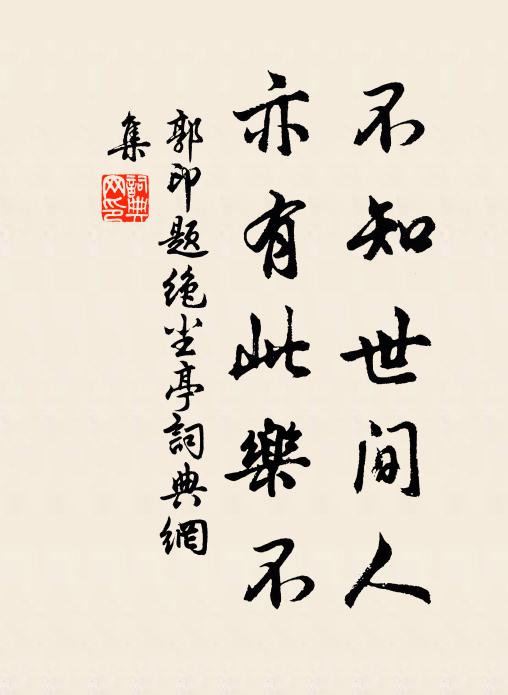 不知世间人
亦有此樂不
郭印题绝尘亭詞典網
集
詞典
网印